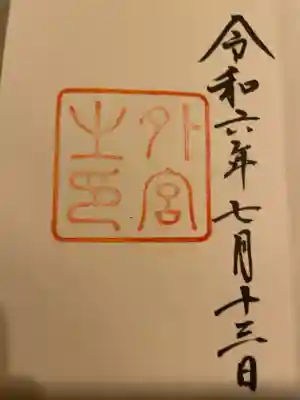 令和六年七月十三日
外宮
之印